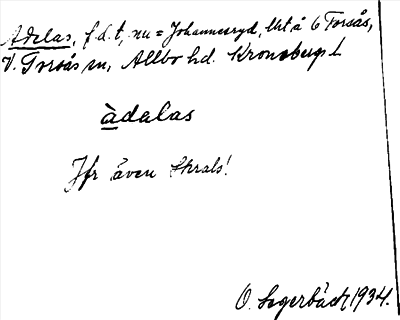 Adelas, f.d.t, nu = Johannesryd, lht å 6 Torsås,
V. Torsås sn, Allbo hd. Kronobergs l.
àdalas
Jfr även Skrals!
O. Sagerbäck 1934.